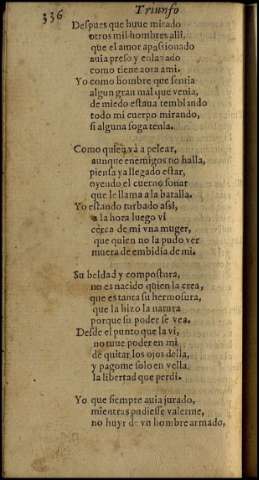 336
Triunfo
Despues que huue mirado
otros mil hombres alli,
que el amor apassionado
auia preso y enlazado
como tiene aora a mi.
Yo como hombre que sentia
algun gran mal que venia,
de miedo estaua temblando
todo mi cuerpo mirando,
si alguna soga tenia.
Como quien và a pelear,
aunque enemigos no halla,
piensa ya llegado estar,
oyendo el cuerno sonar
que le llama a la batalla.
Yo estando turbado assi,
a la hora luego vi
cerca de mi vna muger,
que quien no la pudo ver
muera de embidia de mi.
Su beldad y compostura,
no es nacido quien la crea,
que es tanta su hermosura,
que la hizo la natura
porque su poder se vea.
Desde el punto que la vi,
no tuue poder en mi
de quitar los ojos della,
y pagome solo en vella
la libertad que perdi.
Yo que siempre auia jurado,
mientras pudiesse valerme,
no huyr de vn hombre armado,